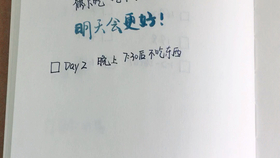 明天会更好!
□ Day 2 晚上 7:30后不吃东西